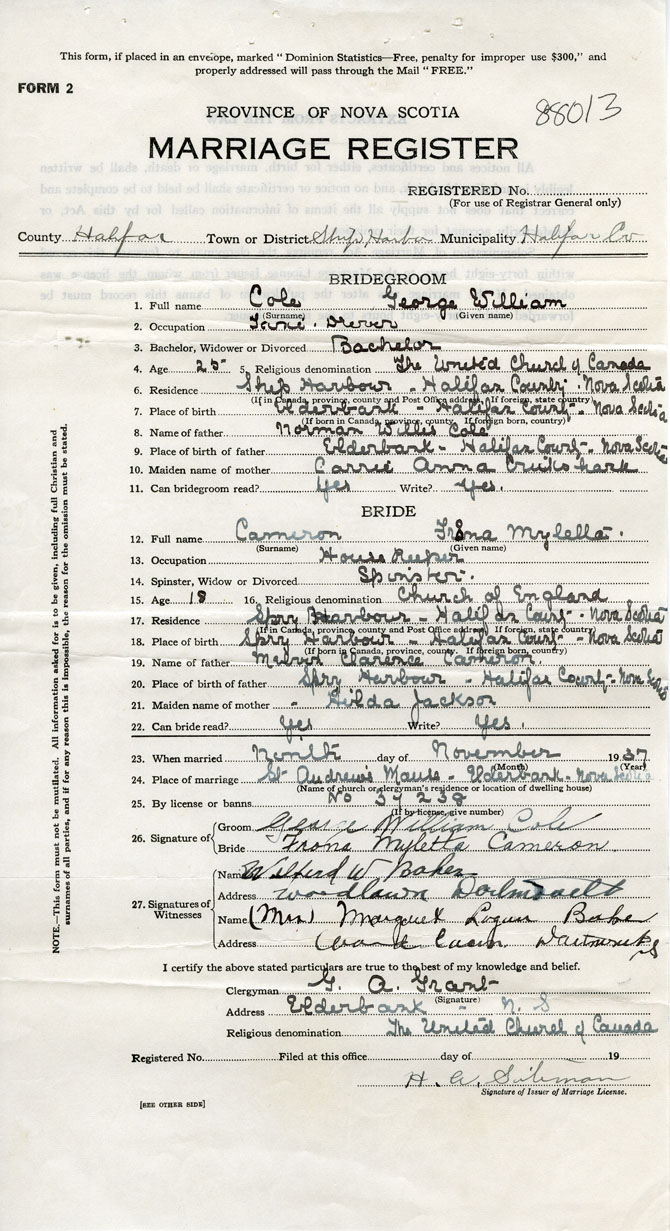 This form, if placed in an envelope, marked "Dominion Statistics—Free, penalty for improper use $300," and
properly addressed will pass through the Mail "FREE."
FORM 2
88013
PROVINCE OF NOVA SCOTIA
MARRIAGE REGISTER
REGISTERED No.
(For use of Registrar General only)
County Halifax Town or District Ship Harbor Municipality Halifax Co
BRIDEGROOM
1. Full name Cole George William
(Surname) (Given name)
2. Occupation Driver
3. Bachelor, Widower or Divorced Bachelor
4. Age 25 5. Religious denomination The United Church of Canada
6. Residence Ship Harbour - Halifax County - Nova Scotia
(If in Canada, province, county and Post Office address. If foreign, state country)
7. Place of birth Elderbank - Halifax County - Nova Scotia
(If born in Canada, province, county. If foreign born, country)
8. Name of father Norman Willis Cole
9. Place of birth of father Elderbank - Halifax County - Nova Scotia
10. Maiden name of mother Carrie Anna Cruikshank
11. Can bridegroom read? Yes Write? Yes.
BRIDE
12. Full name Cameron Frona Myletta.
(Surname) (Given name)
13. Occupation House Keeper
14. Spinster, Widow or Divorced Spinster.
15. Age 18 16. Religious denomination Church of England
17. Residence Spry Harbour - Halifax County - Nova Scotia
(If in Canada, province, county and Post Office address. If foreign, state country)
18. Place of birth Spry Harbour - Halifax County - Nova Scotia
(If born in Canada, province, county. If foreign born, country)
19. Name of father Melvin Clarence Cameron
20. Place of birth of father Spry Harbour - Halifax County - Nova Scotia
21. Maiden name of mother - Hilda Jackson
22. Can bride read? Yes Write? Yes.
23. When married Ninth day of November 1937
(Month) (Year)
24. Place of marriage St Andrew's Manse - Elderbank - Nova Scotia
(Name of church or clergyman's residence or location of dwelling house)
25. By license or banns No 37238
(If by license, give number)
26. Signature of Groom George William Cole
Bride Frona Myletta Cameron
27. Signatures of Witnesses
Name Wilferd W Baker
Address Woodlawn Dartmouth
Name (Mrs) Margaret Logan Baker
Address Dartmouth NS
I certify the above stated particulars are true to the best of my knowledge and belief.
Clergyman G. A. Grant
(Signature)
Address Elderbank - N. S
Religious denomination The United Church of Canada
Registered No. Filed at this office day of 19
H. A.
Signature of Issuer of Marriage License.
[SEE OTHER SIDE]
NOTE.—This form must not be mutilated. All information asked for is to be given, including full Christian and
surnames of all parties, and if for any reason this is impossible, the reason for the omission must be stated.